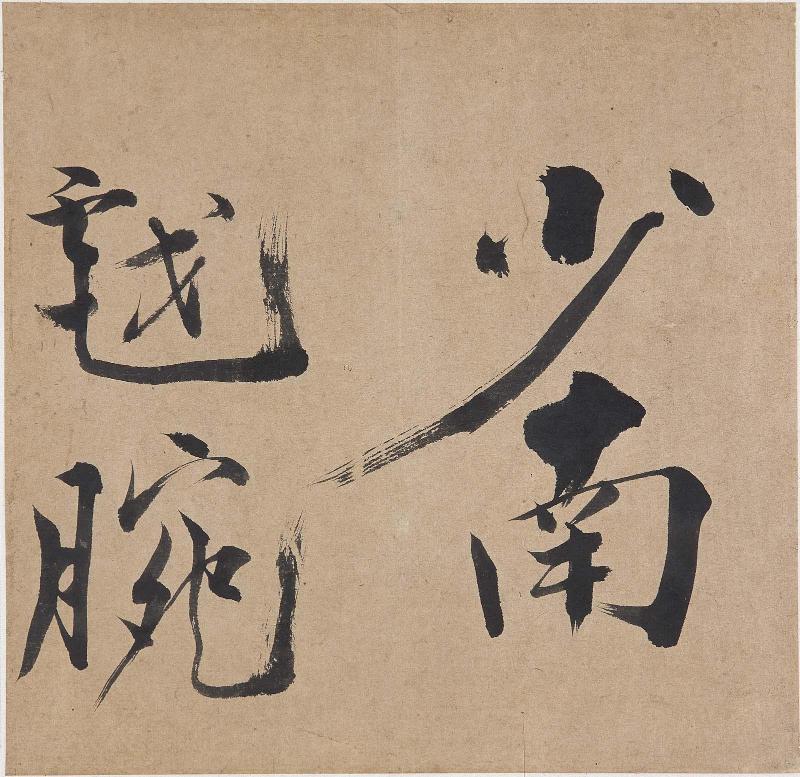 少南
越腕